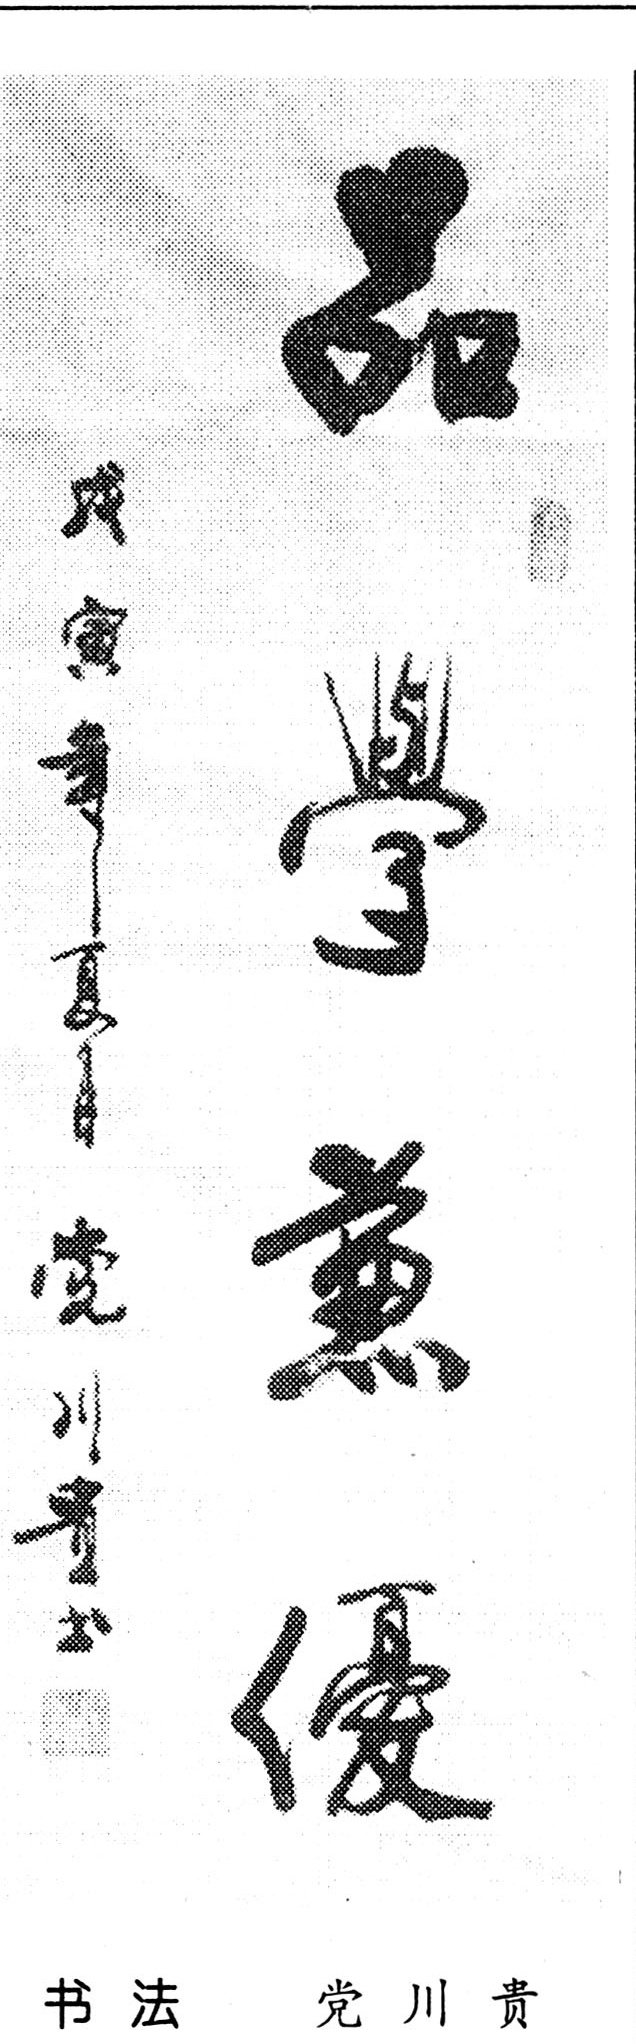 品學兼優
戊寅年夏月 党川贵书
书法 党川贵